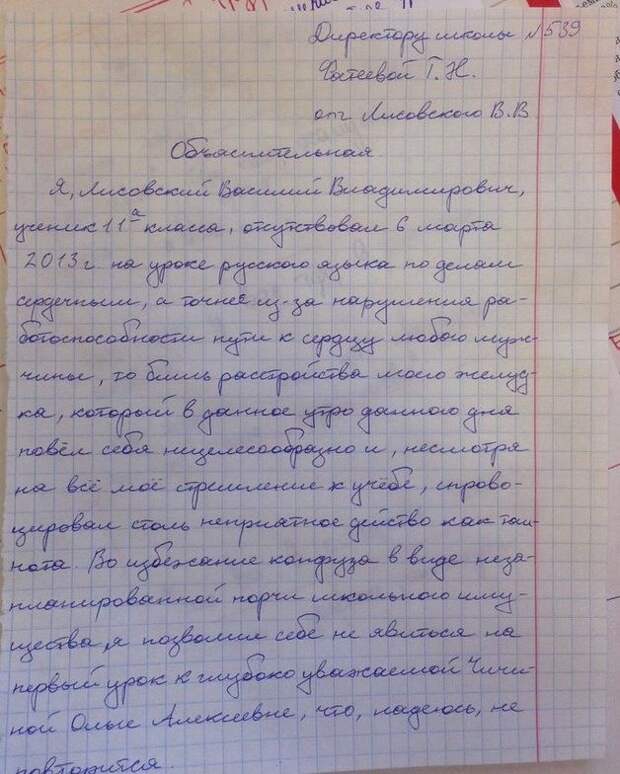 Директору школы №539
Фатеевой Т.Н.
от Лисовского В.В
Объяснительная
Я, Лисовский Василий Владимирович,
ученик 11а класса, отсутствовал 6 марта
2013г. на уроке русского языка по делам
сердечным, а точнее из-за нарушения ра-
ботоспособности пути к сердцу любого муж-
чины, то бишь расстройства моего желуд-
ка, который в данное утро данного дня
повёл себя нецелесообразно и, несмотря
на всё моё стремление к учёбе, спрово-
цировал столь неприятное действо как тош-
нота. Во избежание конфуза в виде неза-
планированной порчи школьного иму-
щества, я позволил себе не явиться на
первый урок к глубоко уважаемой Чичи-
ной Ольге Алексеевне, что, надеюсь, не
повторится.